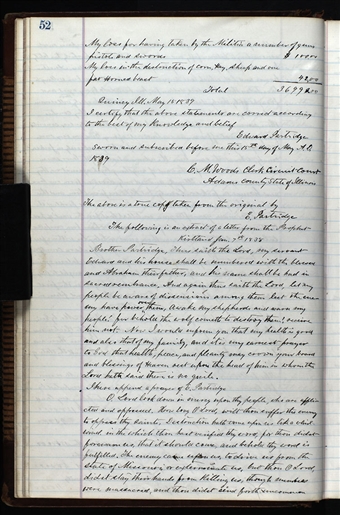 52
My loss for having taken by the Militia a number of guns
pistols and swords $ 100 00
My loss in the destruction of corn, hay, sheep and one
fat horned beast 42 00
Total 3699
Quincy Ill. May 15 1839
I certify that the above statements are correct according
to the best of my Knowledge and belief
Edward Partridge
Sworn and subscribed before me this 15th day of May A.D.
1839
C. M. Woods Clerk Circuit Court
Adams County State of Illinois
The above is a true copy taken from the original by
E. Partridge
The following is an extract of a letter from the Prophet
Kirtland Jan. 7th 1838
Brother Partridge, Thus saith the Lord, my servant
Edward and his house shall be numbered with the blessed
and Abraham their father, and his name shall be had in
sacred remembrance. And again thus saith the Lord, let my
people be aware of dissensions among them lest the ene-
my have power over them, Awake my shepherds and warn my
people! for behold the wolf cometh to destroy them! receive
him not. Now I would inform you that my health is good
and also that of my family, and it is my earnest prayer
to God that health, peace, and plenty may crown your board
and blessings of Heaven rest upon the head of him in whom the
Lord hath said there is no guile.
I here append a prayer of E. Partridge
O Lord look down in mercy upon thy people, who are afflic-
ted and oppressed. How long O Lord, wilt thou suffer the enemy
to oppress thy saints. Destruction hath come upon us like a whirl
wind, in the which thou hast verified thy word, for thou didst
forewarn us that it should come, and behold thy word is
fulfilled. The enemy came upon us to drive us from the
State of Missouri or exterminate us, but thou O Lord,
didst stay their hands from killing us, though numbers
were massacred, and thou didst send forth